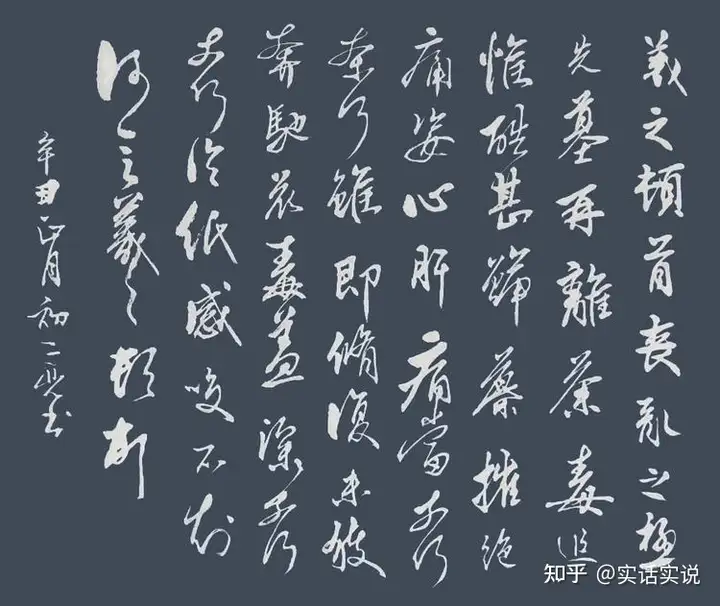 羲之頓首喪亂之極
先墓再離荼毒追
惟酷甚號慕摧絕
痛貫心肝痛當奈何
奈何雖即脩復未獲
奔馳哀毒益深奈何
奈何臨紙感哽不知
何言羲之頓首
辛丑正月初二書
知乎 @实话实说